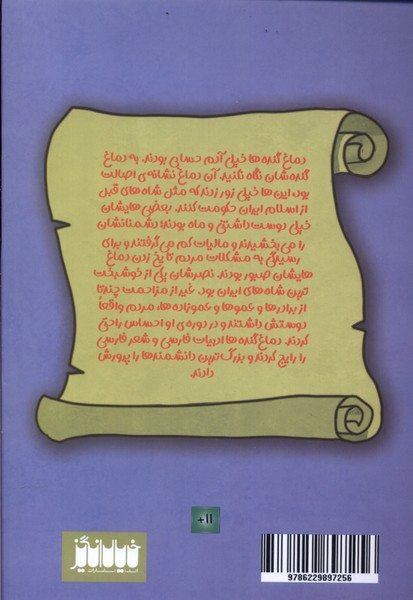 دماغ گنده‌ها خیلی آدم حسابی بودند. به دماغ
گنده‌شان نگاه نکنید. آن دماغ نشانه‌ی اصالت
بود. این‌ها خیلی زور زدند که مثل شاه‌های قبل
از اسلام ایران حکومت کنند. بعضی‌هایشان
خیلی دوست‌داشتنی و ماه بودند؛ دشمنانشان
را می‌بخشیدند و مالیات کم می‌گرفتند و برای
رسیدگی به مشکلات مردم تا یخ زدن دماغ
هایشان صبور بودند. نصرشان یکی از خوشبخت
ترین شاه‌های ایران بود. غیر از مزاحمت چندتا
از برادرها و عموها و عموزاده‌ها، مردم واقعاً
دوستش داشتند و در دوره‌ی او احساس راحتی
کردند. دماغ‌گنده‌ها ادبیات فارسی و شعر فارسی
را رایج کردند و بزرگ‌ترین دانشمندها را پرورش
دادند.
+۱۱
خیال‌انگیز
انتشارات
9786229897256